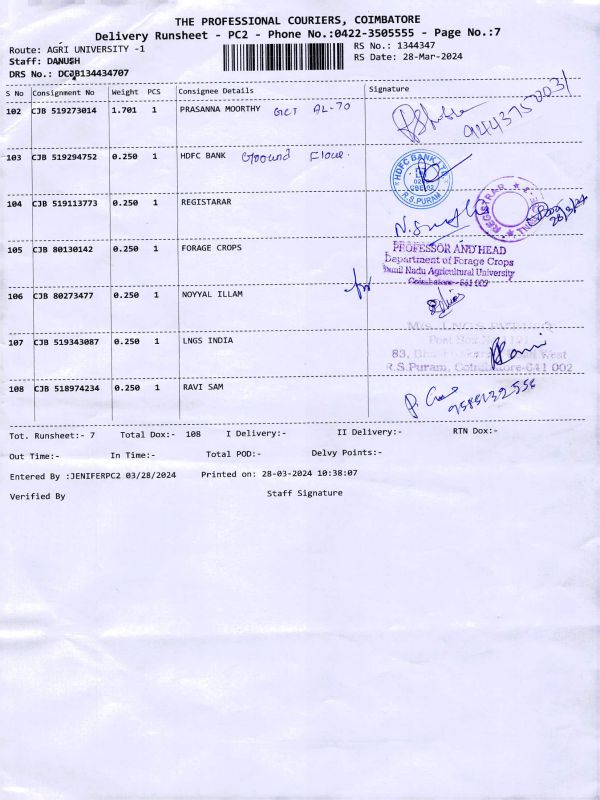 THE PROFESSIONAL COURIERS, COIMBATORE
Delivery Runsheet - PC2 - Phone No.:0422-3505555 - Page No.:7
Route: AGRI UNIVERSITY -1
RS No.: 1344347
Staff: DANUSH
RS Date: 28-Mar-2024
DRS No.: DCJB134434707
S No Consignment No Weight PCS Consignee Details Signature
102 CJB 519273014 1.701 1 PRASANNA MOORTHY GCT AL-70
103 CJB 519294752 0.250 1 HDFC BANK Ground Floor
HDFC BANK
R.S.PURAM
104 CJB 519113773 0.250 1 REGISTARAR
REGISTRAR
28/3/24
105 CJB 80130142 0.250 1 FORAGE CROPS
PROFESSOR AND HEAD
Department of Forage Crops
Tamil Nadu Agricultural University
Coimbatore-641 003
106 CJB 80273477 0.250 1 NOYYAL ILLAM
for
107 CJB 519343087 0.250 1 LNGS INDIA
M/s. LNGS
Post Box
83, West
R.S.Puram, Coimbatore-641 002
108 CJB 518974234 0.250 1 RAVI SAM
9585132556
Tot. Runsheet:- 7 Total Dox:- 108 I Delivery:- II Delivery:- RTN Dox:-
Out Time:- In Time:- Total POD:- Delvy Points:-
Entered By :JENIFERPC2 03/28/2024 Printed on: 28-03-2024 10:38:07
Verified By Staff Signature